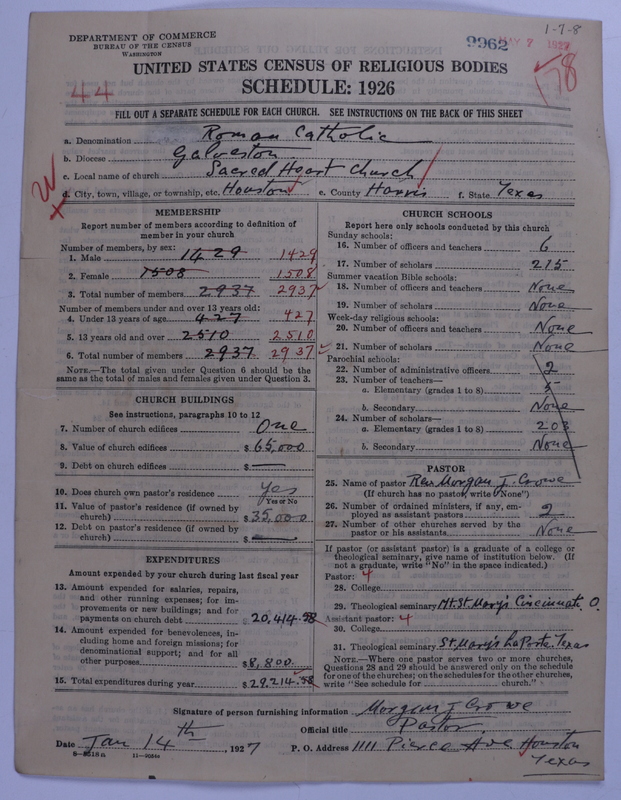 1-7-8
DEPARTMENT OF COMMERCE
BUREAU OF THE CENSUS
WASHINGTON
9962 MAY 7 1927
UNITED STATES CENSUS OF RELIGIOUS BODIES
44
SCHEDULE: 1926
178
FILL OUT A SEPARATE SCHEDULE FOR EACH CHURCH. SEE INSTRUCTIONS ON THE BACK OF THIS SHEET
a. Denomination Roman Catholic
b. Diocese Galveston
c. Local name of church Sacred Heart Church
d. City, town, village, or township, etc. Houston e. County Harris f. State Texas
MEMBERSHIP
Report number of members according to definition of
member in your church
Number of members, by sex:
1. Male 1429 1429
2. Female 1508 1508
3. Total number of members 2937 2937
Number of members under and over 13 years old:
4. Under 13 years of age 427 427
5. 13 years old and over 2510 2510
6. Total number of members 2937 2937
NOTE.—The total given under Question 6 should be
same as the total of males and females given under Question 3.
CHURCH BUILDINGS
See instructions, paragraphs 10 to 12
7. Number of church edifices One
8. Value of church edifices $65,000
9. Debt on church edifices $
10. Does church own pastor's residence Yes
Yes or No
11. Value of pastor's residence (if owned by
church) $35,000
12. Debt on pastor's residence (if owned by
church) $
EXPENDITURES
Amount expended by your church during last fiscal year
13. Amount expended for salaries, repairs,
and other running expenses; for im-
provements or new buildings; and for
payments on church debt 20,414.58
14. Amount expended for benevolences, in-
cluding home and foreign missions; for
denominational support; and for all
other purposes $8,800.
15. Total expenditures during year $29,214.58
CHURCH SCHOOLS
Report here only schools conducted by this church
Sunday schools:
16. Number of officers and teachers 6
17. Number of scholars 215
Summer vacation Bible schools:
18. Number of officers and teachers None
19. Number of scholars None
Week-day religious schools:
20. Number of officers and teachers None
21. Number of scholars None
Parochial schools:
22. Number of administrative officers 2
23. Number of teachers—
a. Elementary (grades 1 to 8) 5
b. Secondary None
24. Number of scholars—
a. Elementary (grades 1 to 8) 203
b. Secondary None
PASTOR
25. Name of pastor Rev. Morgan J. Crowe
(If church has no pastor, write "None")
26. Number of ordained ministers, if any, em-
ployed as assistant pastors 2
27. Number of other churches served by the
pastor or his assistants None
If pastor (or assistant pastor) is a graduate of a college or
theological seminary, give name of institution below. (If
not a graduate, write "No" in the space indicated.)
Pastor: 4
28. College
29. Theological seminary Mt. St. Mary's Cincinnati, O.
Assistant pastor: 4
30. College
31. Theological seminary St. Mary's LaPorte, Texas
NOTE.—Where one pastor serves two or more churches,
Questions 28 and 29 should be answered only on the schedule
for one of the churches; on the schedules for the other churches,
write "See schedule for church."
Signature of person furnishing information Morgan J. Crowe
Official title Pastor
Date Jan 14th, 1927 P. O. Address 1111 Pierce Ave Houston
Texas
8—8518a 11—9056